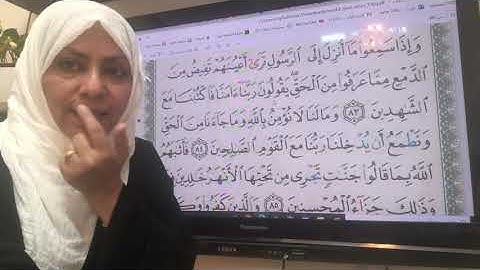 وَإِذَا سَمِعُوا۟ مَآ أُنزِلَ إِلَى ٱلرَّسُولِ تَرَىٰٓ أَعْيُنَهُمْ تَفِيضُ مِنَ
ٱلدَّمْعِ مِمَّا عَرَفُوا۟ مِنَ ٱلْحَقِّ ۖ يَقُولُونَ رَبَّنَآ ءَامَنَّا فَٱكْتُبْنَا مَعَ
ٱلشَّٰهِدِينَ ٨٣ وَمَا لَنَا لَا نُؤْمِنُ بِٱللَّهِ وَمَا جَآءَنَا مِنَ ٱلْحَقِّ
وَنَطْمَعُ أَن يُدْخِلَنَا رَبُّنَا مَعَ ٱلْقَوْمِ ٱلصَّٰلِحِينَ ٨٤ فَأَثَٰبَهُمُ
ٱللَّهُ بِمَا قَالُوا۟ جَنَّٰتٍ تَجْرِى مِن تَحْتِهَا ٱلْأَنْهَٰرُ خَٰلِدِينَ
وَذَٰلِكَ جَزَآءُ ٱلْمُحْسِنِينَ ٨٥ وَٱلَّذِينَ كَفَرُوا۟ وَكَ
Panasonic